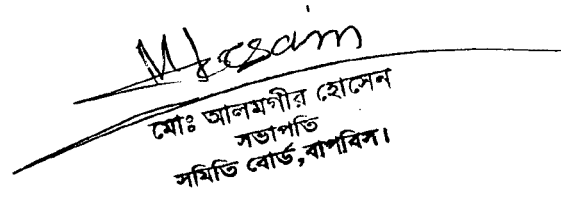 মোঃ আলমগীর হোসেন
সভাপতি
সমিতি বোর্ড, বাপবিস।